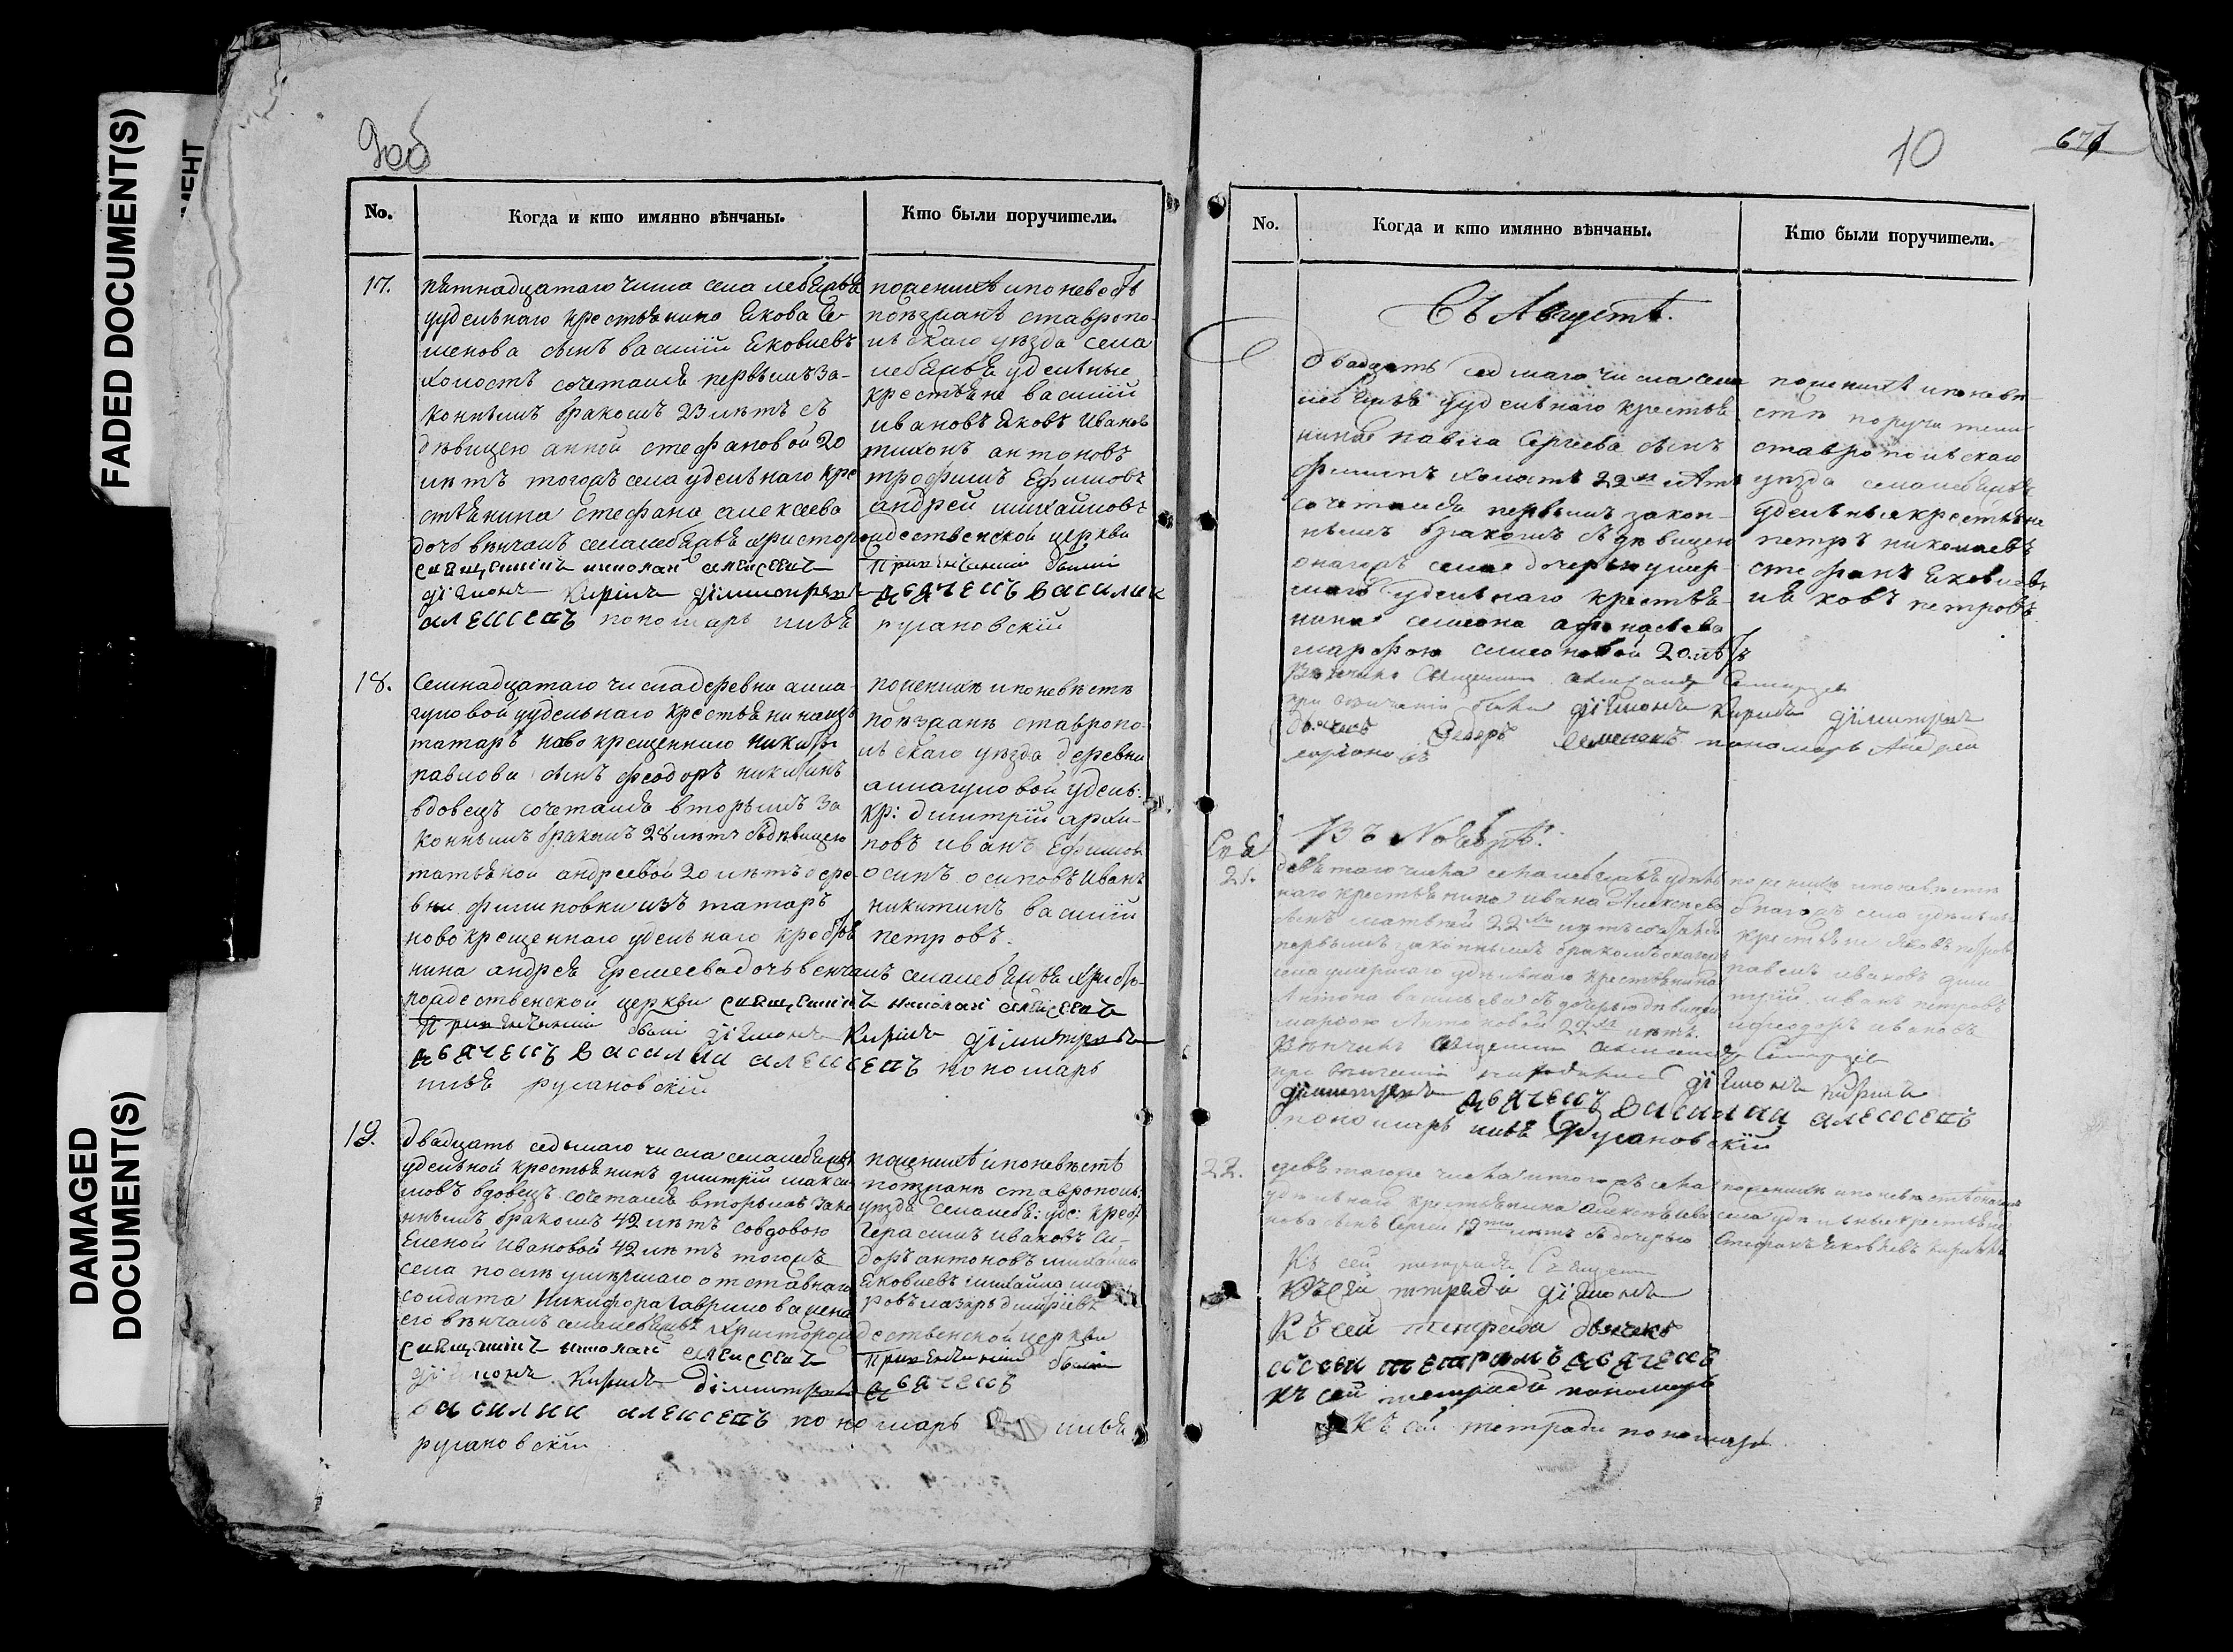 FADED DOCUMENT(S)
DAMAGED
DOCUMENT(S)
9об
No.
Когда и кто имянно вѣнчаны.
Кто были поручители.
17.
пятнадцатаго числа села лебяжья
удельнаго крестьянина Якова Се-
менова сынъ василіи Яковлевъ
холостъ сочетался первымъ за-
коннымъ бракомъ 23 лѣтъ съ
дѣвицею анной стефановой 20
лѣтъ тогожъ села удельнаго кре
стьянина стефана алексеева
дочь вѣнчалъ села лебяжья христорождественской церкви
священникъ николай алексеевъ
діаконъ Кирилъ димитріевъ
алексеевъ пономарь илья
по женихѣ и по невестѣ
поѣзжанѣ ставропо-
льскаго уѣзда села
лебяжья удельные
крестьяне василіи
ивановъ Яковъ Ивановъ
тихонъ антоновъ
трофимъ Ефимовъ
андрей михаиловъ
При венчаніи были
дьячекъ василии
русановскіи
18.
Семнадцатаго числа деревни алма-
гуловой удельнаго крестьянина изъ
татаръ новокрещеннаго никиты
павлова сынъ феодоръ никитинъ
вдовецъ сочетался вторымъ за
коннымъ бракомъ 28 лѣтъ съ дѣвицею
татьяной андреевой 20 лѣтъ дере
вни филиповки изъ татаръ
новокрещеннаго удельнаго крестья
нина андрея Еремеева дочь венчалъ села лебяжья христо-
рождественской церкви священникъ николай алексеевъ
При венчаніи были діаконъ Кирилъ димитріевъ
дьячекъ василии алексеевъ пономарь
илья русановскіи
по женихѣ и по невѣстѣ
поѣзжанѣ ставропо-
льскаго уѣзда деревни
алмагуловой удель:
кр: димитріи архи-
повъ иванъ Ефимовъ
осипъ осиповъ Иванъ
никитинъ василіи
петровъ.
19.
двадцать седьмаго числа села лебяжья
удельной крестьянинъ димитріи макси
мовъ вдовецъ сочетался вторымъ зако
ннымъ бракомъ 42 лѣтъ со вдовою
Еленой Ивановой 42 лѣтъ тогожъ
села послѣ умершаго отставнаго
солдата Никифора Гаврилова жена
его вѣнчалъ села лебяжья Христорождественской церкви
священникъ николай алексеевъ
діаконъ Кирилъ димитріевъ
василии алексеевъ пономарь илья
русановскіи
по женихѣ и по невѣстѣ
поѣзжанѣ ставрополь.
уѣзда села лебя: уде: крест
Герасимъ ивановъ Си-
доръ антоновъ михайла
Яковлевъ михайла
лазарь
При венчаніи были
дьячекъ
10
No.
Когда и кто имянно вѣнчаны.
Кто были поручители.
Въ Августѣ.
двадцать седмаго числа села
лебяжья удельнаго крестья
нина павла Сергеева сынъ
филипъ холостъ 22 лѣтъ
сочетался первымъ закон-
нымъ бракомъ съ дѣвицею
онагожъ села дочерью умер-
шаго удельнаго крестья-
нина семиона афонасьева
марфою семионовой 20 лѣтъ
Вѣнчалъ Священник
при венчаніи были діаконъ Кирилъ димитріевъ
дьячекъ пономарь Андрей
по женихѣ и по невѣ
стѣ поручители
ставропольскаго
уезда села лебяжья
удельныя крестьяне
петръ николаевъ
стефанъ Яковлевъ
Яковъ петровъ
Въ Ноябрѣ.
21.
девятаго числа села лебяжья удѣль
наго крестьянина ивана Алексеева
сынъ матвей 22 лѣтъ
первымъ законнымъ бракомъ онагожъ
села умершаго удѣльнаго крестьянина
Антона васильева съ дочерью дѣвицей
марьею Антоновой 22 лѣтъ.
Вѣнчалъ священник
при венчаніи находились діаконъ Кирилъ
димитріевъ дьячекъ василии алексеевъ
пономарь илья русановскіи
по женихѣ и по невѣстѣ
онагожъ села удѣльные
крестьяне Яковъ петровъ
павелъ ивановъ дими
трій иванъ петровъ
и феодоръ ивановъ
22.
девятаго числа тогожъ села
удельнаго крестьянина Алексея
нова сынъ Сергей 19 лѣтъ съ дочерью
по женихѣ и по невѣстѣ онагожъ
села удѣльные крестьяне
Стефанъ Яковлевъ
Къ сей тетради Священникъ
Къ сей тетради діаконъ
Къ сей тетради дьячекъ
къ сеи тетради дьячекъ
къ сей тетради пономарь
Къ сей тетради пономарь